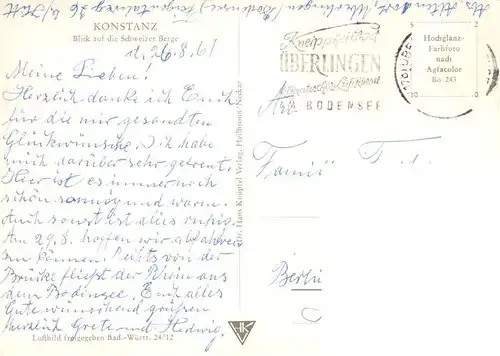 KONSTANZ
Blick auf die Schweizer Berge
d. 26.8.61
Meine Lieben!
Herzlich danke ich Euch
für die mir gesandten
Glückwünsche. Ich habe
mich darüber sehr gefreut.
Hier ist es immer noch
schön sonnig und warm.
Auch sonst ist alles ruhig.
Am 29.8. hoffen wir abfahren
zu können. Rechts von der
Brücke fließt der Rhein aus
dem Bodensee. Euch alles
Gute wünschend grüßen
herzlich Grete und Hedwig.
Luftbild freigegeben Bad.-Württ. 24/12
Hans Knöpfel Verlag, Heilbronn/Neckar
Überlingen (Bodensee)
Kneippheilbad
ÜBERLINGEN
AM BODENSEE
Hochglanz-
Farbfoto
nach
Agfacolor
Bo 245
Familie
Berlin
HK